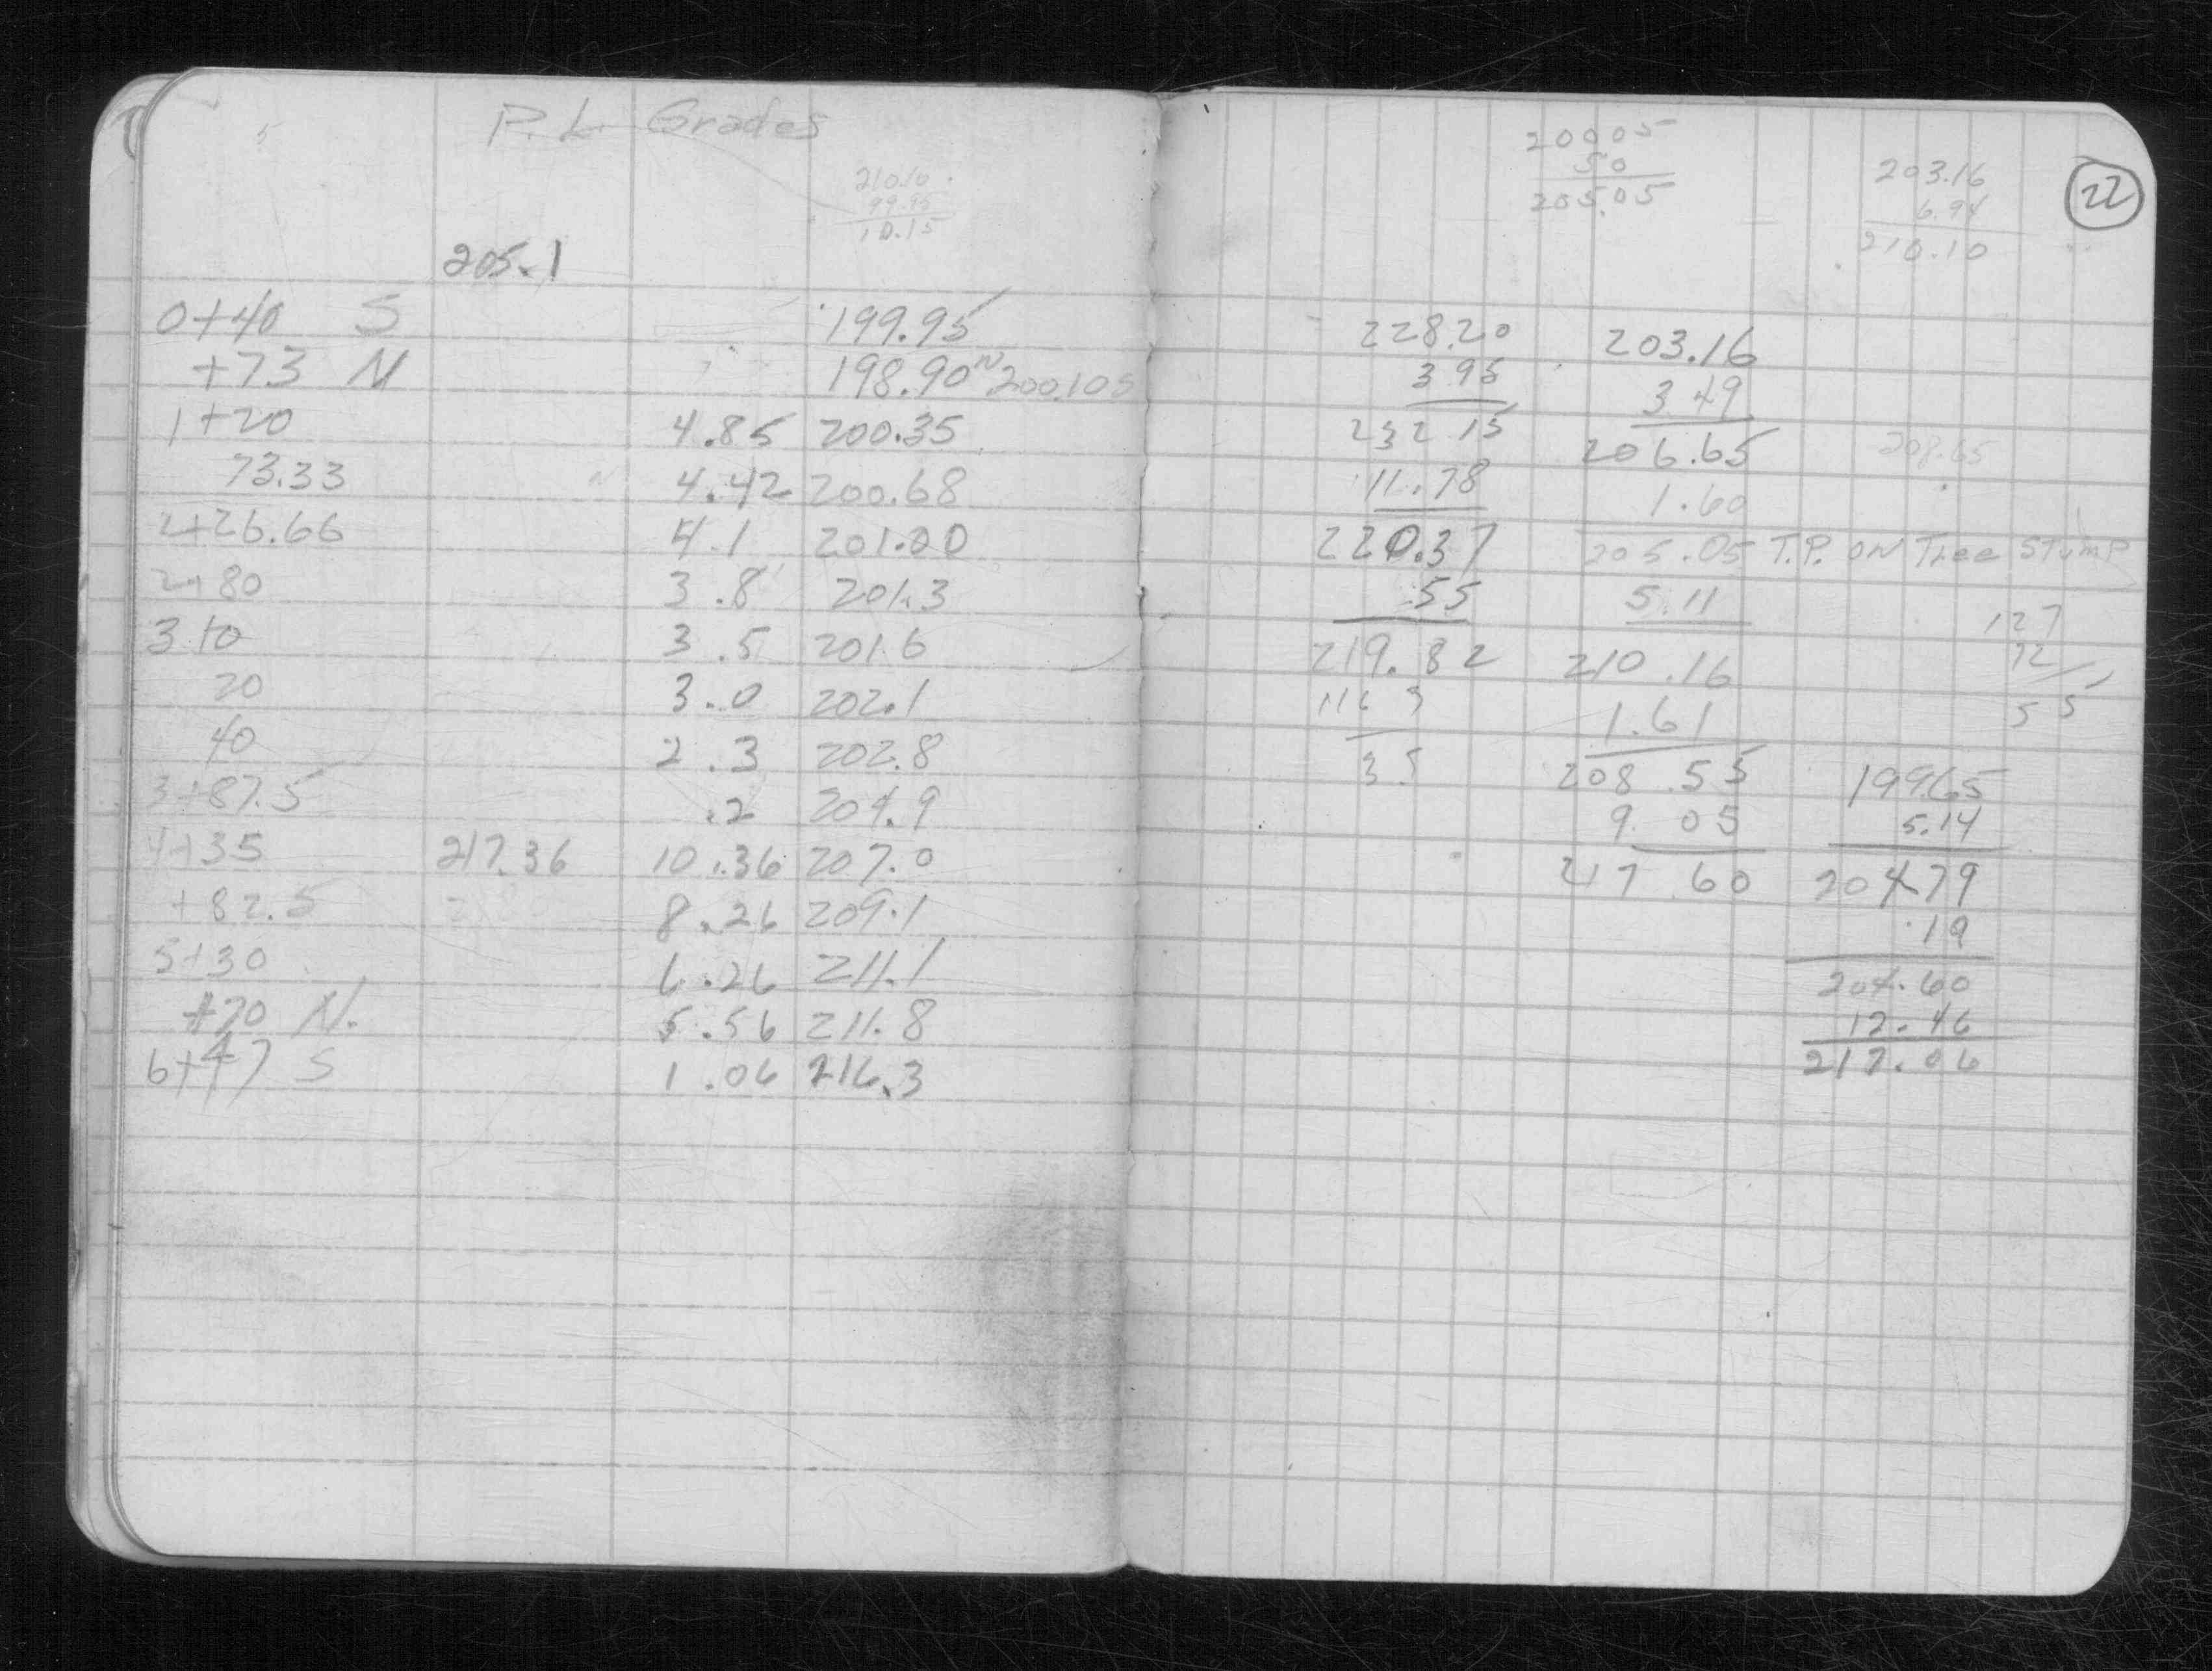 P.L. Grades
210.10
99.95
10.15
205.1
0+40 S 199.95
+73 N 198.90 N 200.105
1+20 4.85 200.35
73.33 4.42 200.68
2+26.66 4.1 201.00
2+80 3.8 201.3
3 10 3.5 201.6
20 3.0 202.1
40 2.3 202.8
3+87.5 .2 204.9
4+35 217.36 10.36 207.0
+82.5 8.26 209.1
5+30 6.26 211.1
+70 N. 5.56 211.8
6+47 S 1.06 216.3
22
200 05
50
205.05
203.16
6.94
210.10
228.20
3 95
232 15
11.78
220.37
.55
219.82
116 3
3 5
203.16
3 49
206.65
1.60
205.05 T.P. ON Tree STump
5.11
210.16
1.61
208.55
9.05
217 60
208.65
127
72
55
199.65
5.14
204.79
.19
204.60
12.46
217.06